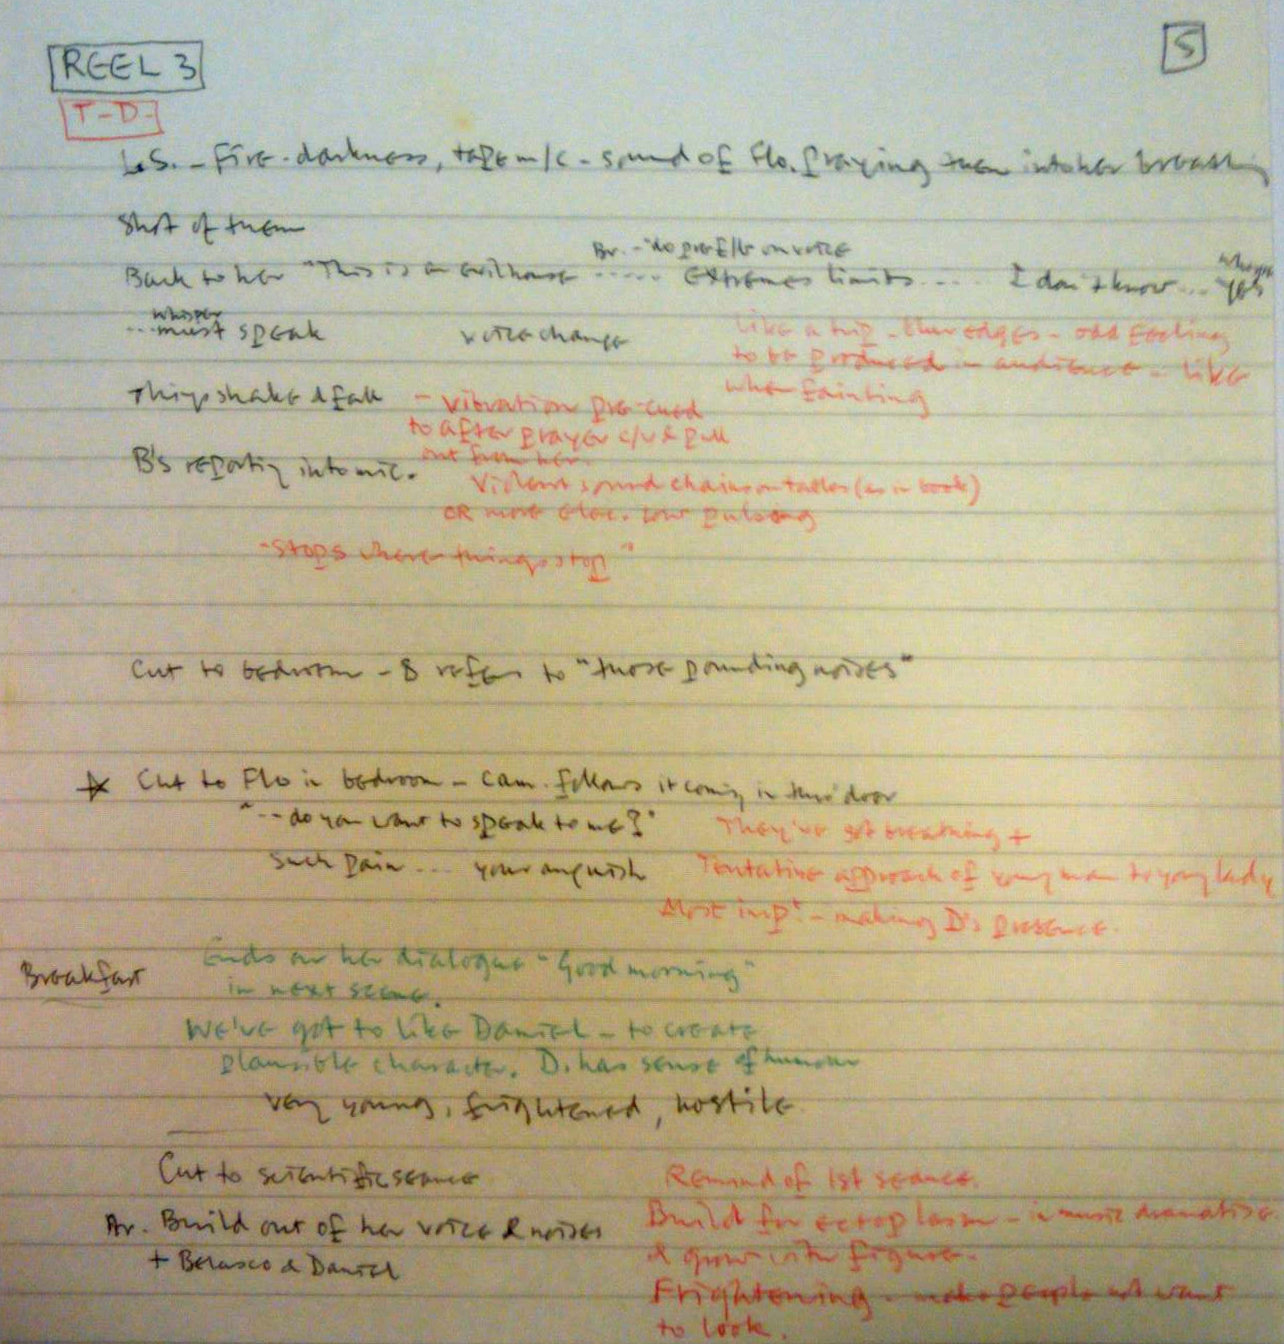 REEL 3
5
T-D-
L.S. - Fire-darkness, tape m/c - sound of Flo. praying then into her breathing
Shot of them
Br. - "do pref/b on voice
Back to her "This is an evil house ..... extremes limits .... I don't know ... yes
whisper
... must speak voice change
Like a trip - blur edges - odd feeling
to be produced in audience - like
when fainting
Things shake & fall
- Vibration pre-cued
to after prayer c/u & pull
out from her.
B's reporting into mic.
Violent sound chains on tables (as in book)
OR more elec. low pulsing
-Stops where things stop"
Cut to bedroom - B refers to "those pounding noises"
Cut to Flo in bedroom - cam. follows it coming in thro' door
"-- do you want to speak to me?"
They've got breathing +
Such pain ... your anguish
Tentative approach of young man to young lady
Most imp! - making D's presence.
Breakfast
Ends on her dialogue "Good morning"
in next scene.
We've got to like Daniel - to create
plausible character. D. has sense of humour
very young, frightened, hostile.
Cut to scientific seance
Remind of 1st seance.
Build out of her voice & noises
+ Belasco & Daniel
Build for ectoplasm - in music dramatise
& grow with figure.
Frightening - make people not want
to look.